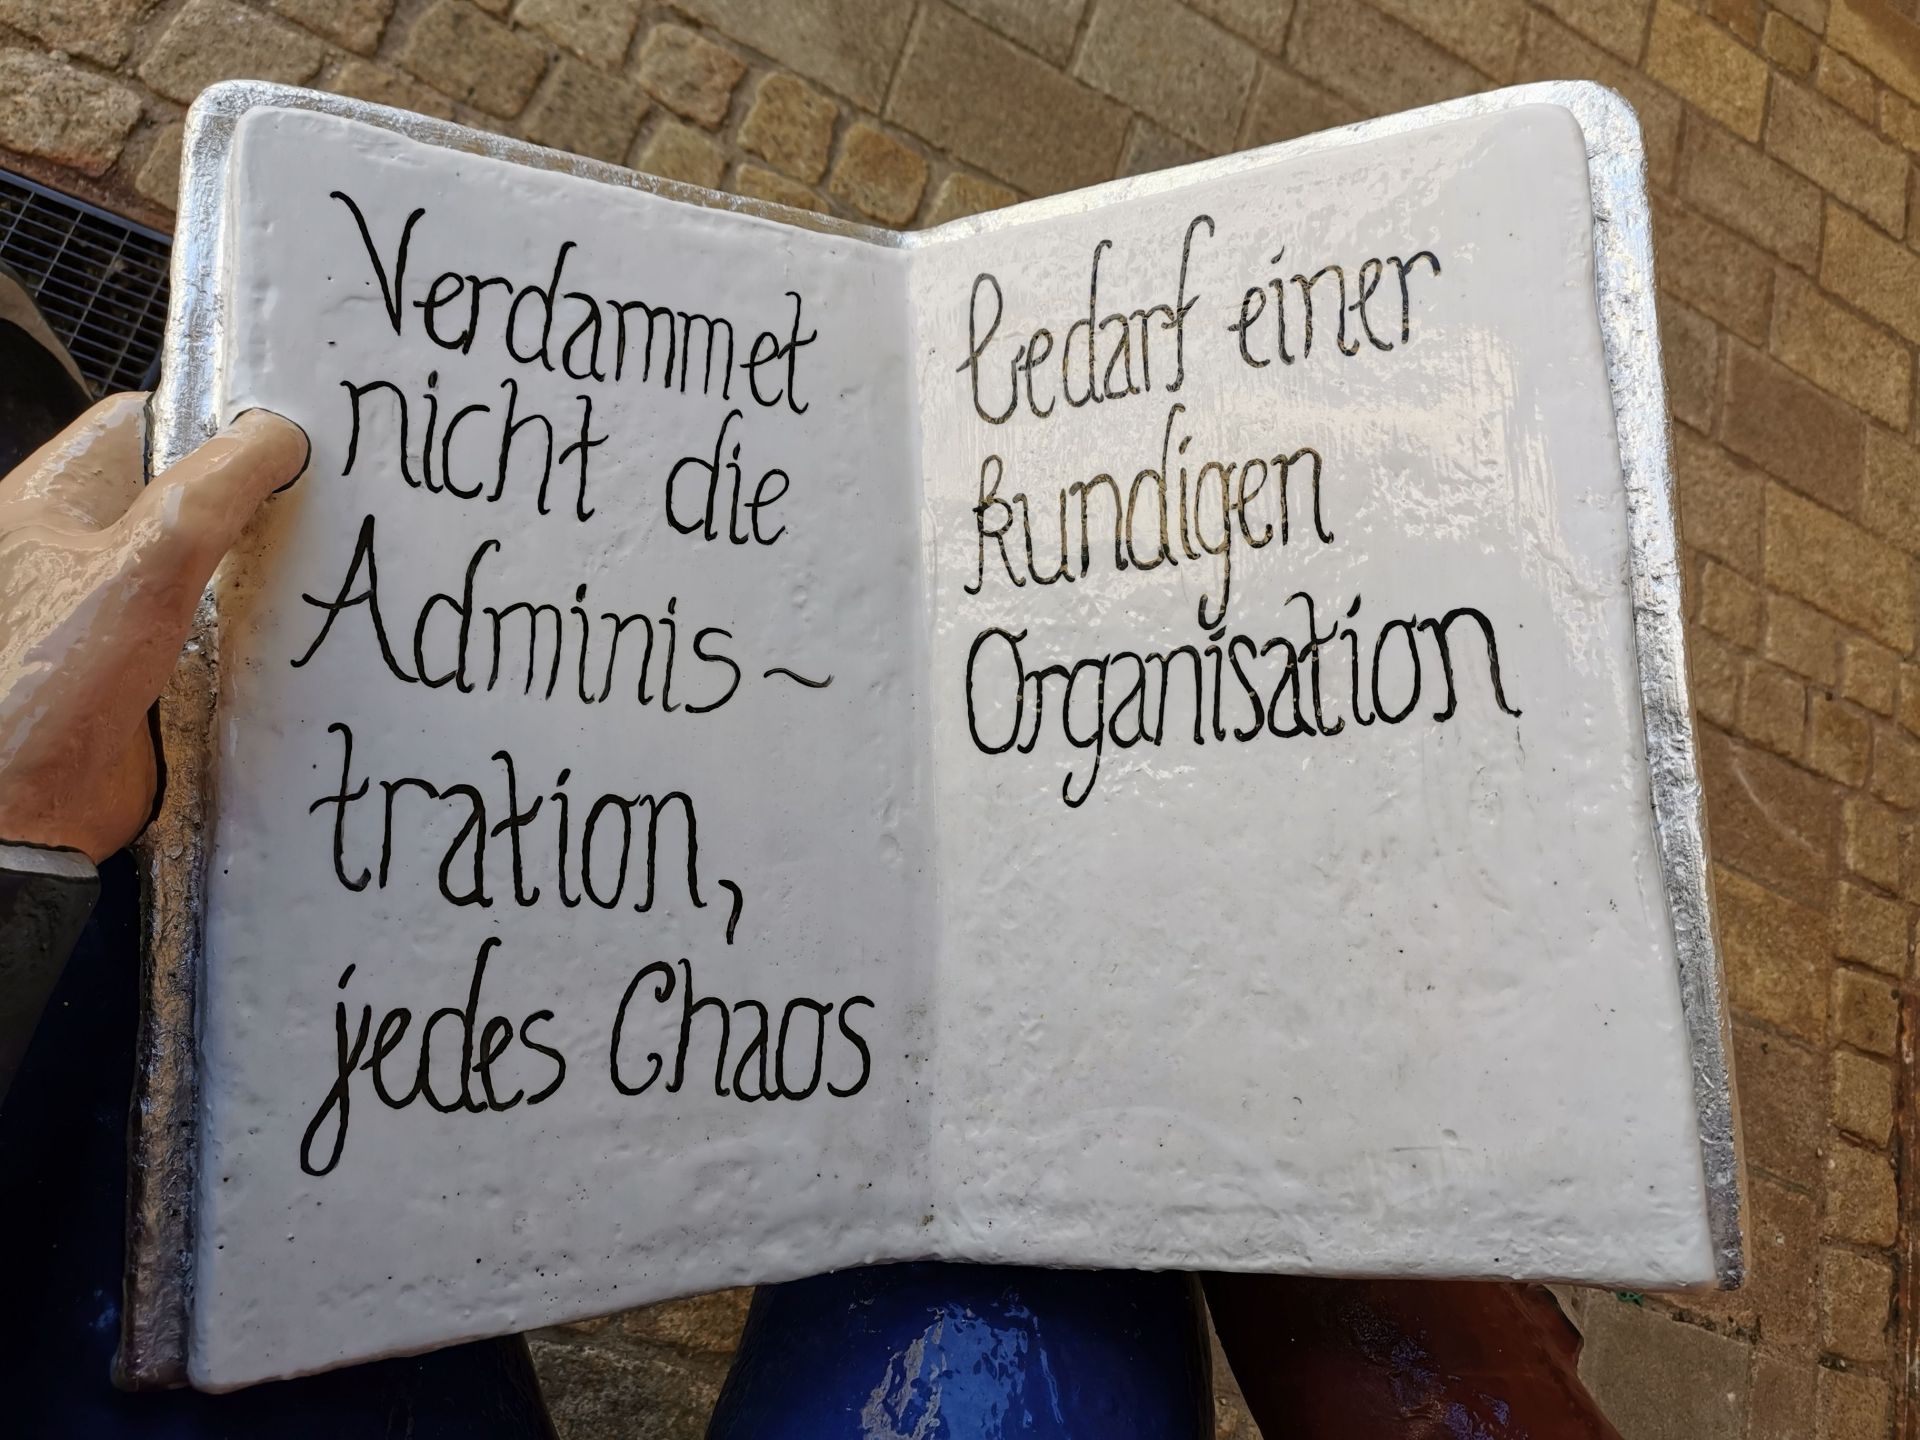 Verdammet
nicht die
Adminis~
tration,
jedes Chaos
bedarf einer
kundigen
Organisation